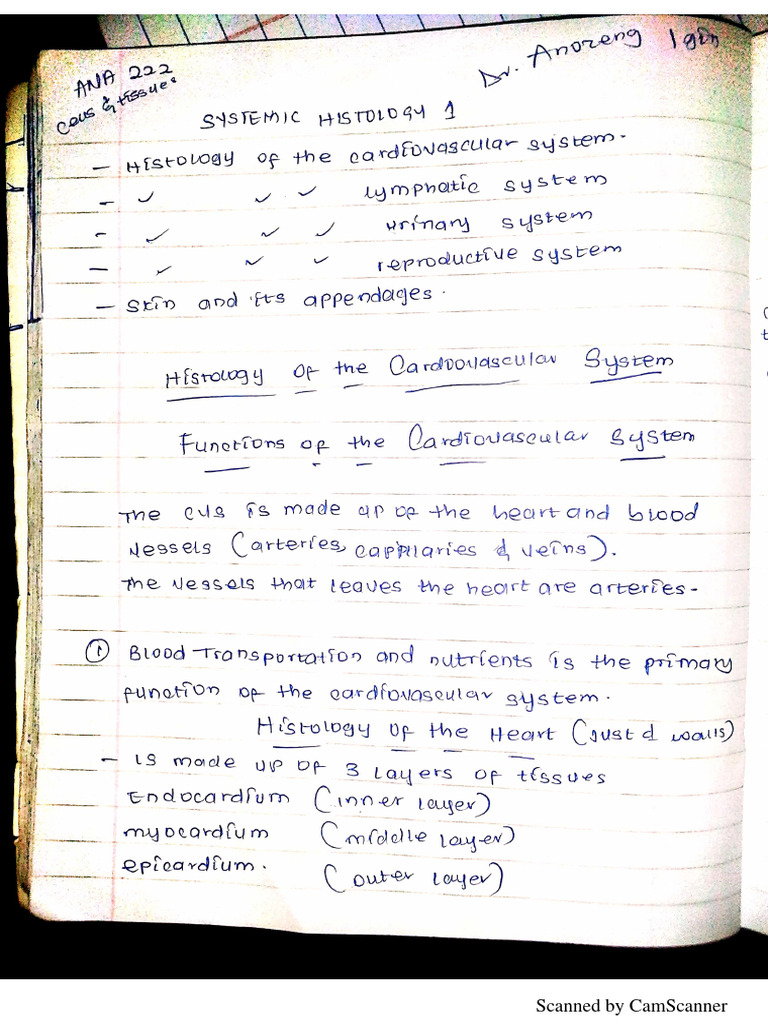 ANA 222
Cells & tissues
Dr. Anoreng Igin
SYSTEMIC HISTOLOGY 1
- Histology of the cardiovascular system.
- ✓ ✓ ✓ lymphatic system
- ✓ ✓ ✓ urinary system
- ✓ ✓ ✓ reproductive system
- Skin and its appendages.
Histology of the Cardiovascular System
Functions of the Cardiovascular System
The CVS is made up of the heart and blood
vessels (arteries, capillaries & veins).
The vessels that leaves the heart are arteries.
① Blood Transportation and nutrients is the primary
function of the cardiovascular system.
Histology of the Heart (just d walls)
- Is made up of 3 layers of tissues
Endocardium (inner layer)
myocardium (middle layer)
epicardium. (outer layer)
Scanned by CamScanner